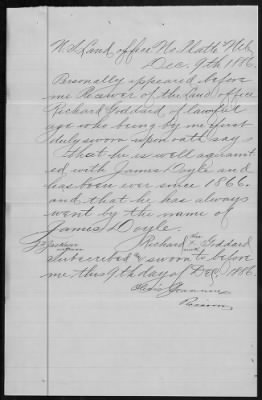 U.S. Land Office No. Platte Neb
Dec. 9th 1886.
Personally appeared before
me Receiver of the Land Office
Richard Goddard of lawful
age who being by me first
duly sworn upon oath says
that he is well acquaint
ed with James Doyle and
has been ever since 1866.
and that he has always
went by the name of
James Doyle.
his
Richard x Goddard
mark
Subscribed & sworn to before
me this 9th day of Dec. 1886.
Receiver